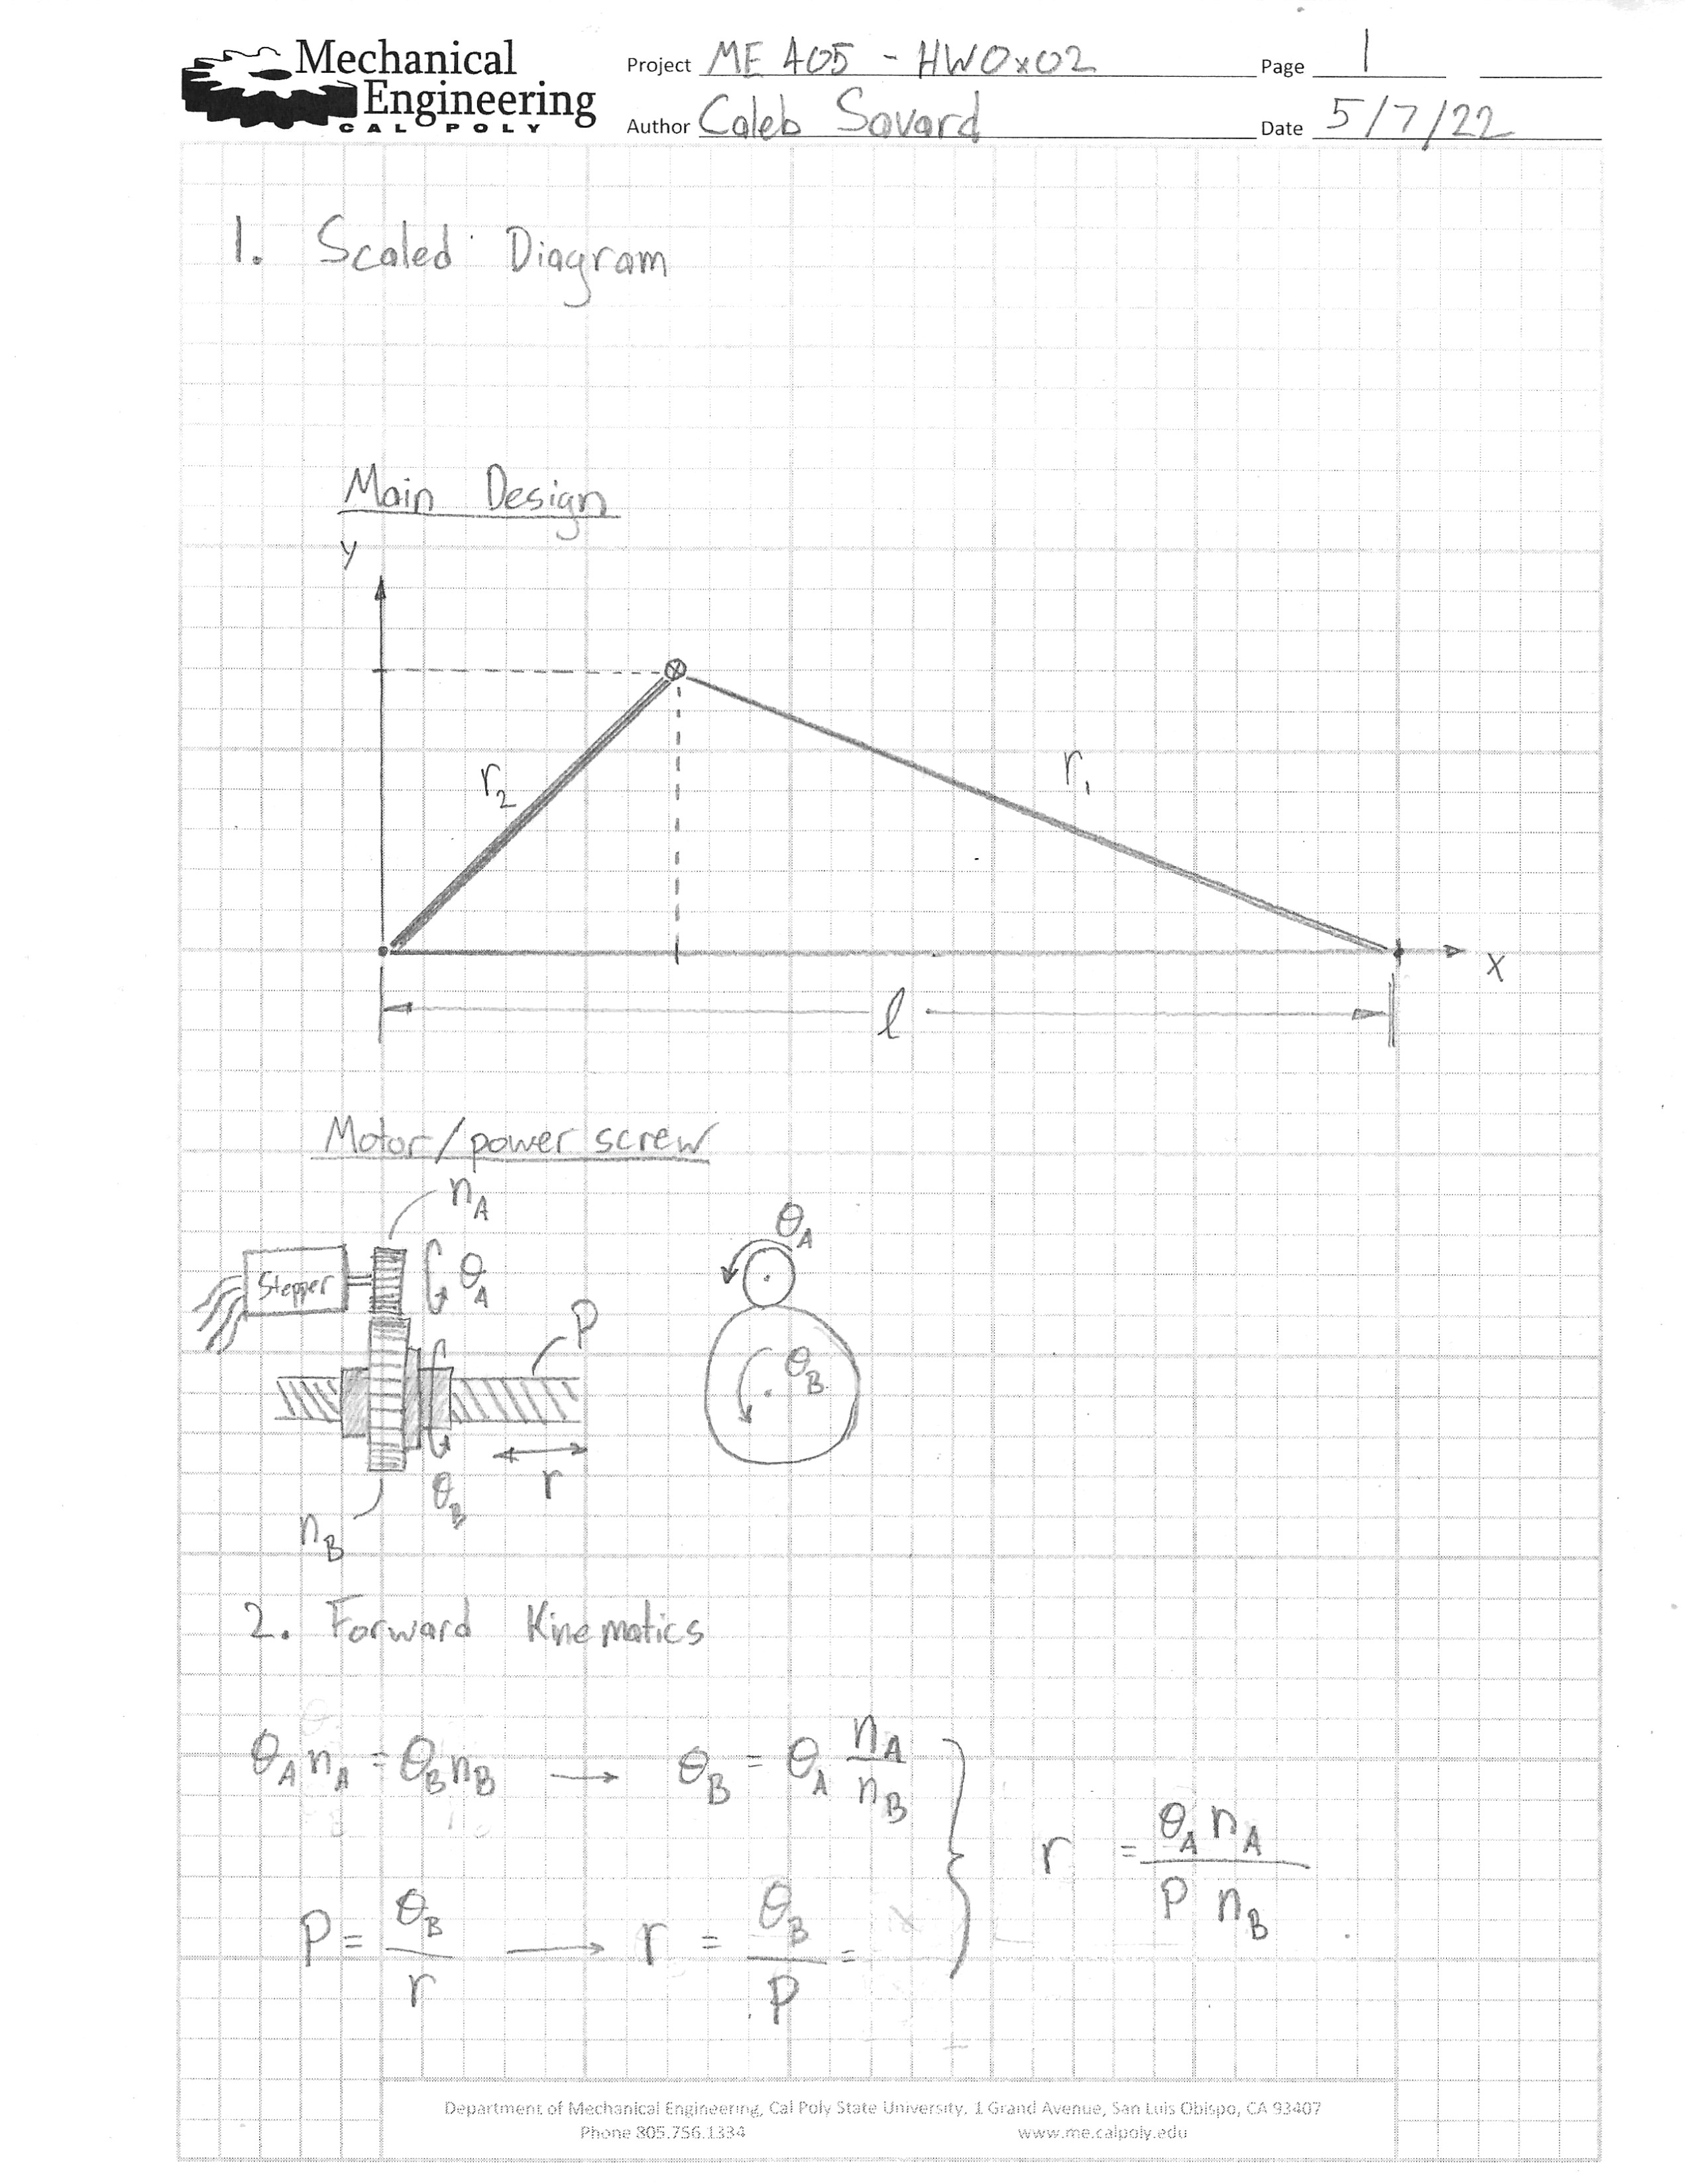 Mechanical Engineering
CAL POLY
Project ME 405 - HW0x02 Page 1
Author Caleb Savard Date 5/7/22
1. Scaled Diagram
Main Design
y
r₂ r₁
x
l
Motor/power screw
n_A
θ_A
Stepper θ_A
P
θ_B
r
θ_B
n_B
2. Forward Kinematics
θ_A n_A = θ_B n_B → θ_B = θ_A n_A / n_B
r = θ_A n_A / P n_B
P = θ_B / r → r = θ_B / P =
Department of Mechanical Engineering, Cal Poly State University, 1 Grand Avenue, San Luis Obispo, CA 93407
Phone 805.756.1334 www.me.calpoly.edu